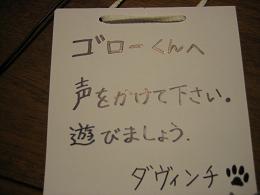 ゴローくんへ
声をかけて下さい。
遊びましょう.
ダヴィンチ